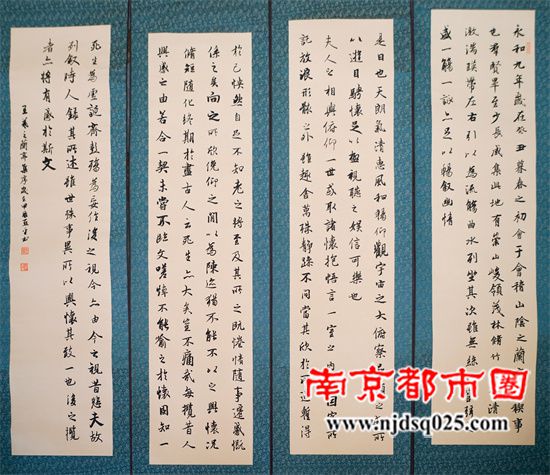 永和九年歲在癸丑暮春之初會于會稽山陰之蘭禊事
也羣賢畢至少長咸集此地有崇山峻領茂林脩竹清
激湍暎帶左右引以為流觴曲水列坐其次雖無絲
盛一觴一詠亦足以暢叙幽情
是日也天朗氣清惠風和暢仰觀宇宙之大俯察品類之所
以遊目騁懷足以極視聽之娛信可樂也
夫人之相與俯仰一世或取諸懷抱悟言一室之內因寄所
託放浪形骸之外雖趣舍萬殊靜躁不同當其欣於所遇暫得
於己快然自足不知老之將至及其所之既惓情隨事遷感慨
係之矣向之所欣俛仰之間以為陳迹猶不能不以之興懷況
脩短隨化終期於盡古人云死生亦大矣豈不痛哉每攬昔人
興感之由若合一契未嘗不臨文嗟悼不能喻之於懷固知一
死生為虛誕齊彭殤為妄作後之視今亦由今之視昔悲夫故
列叙時人錄其所述雖世殊事異所以興懷其致一也後之攬
者亦將有感於斯文
王羲之蘭亭集序
南京都市圈
www.njdsq025.com